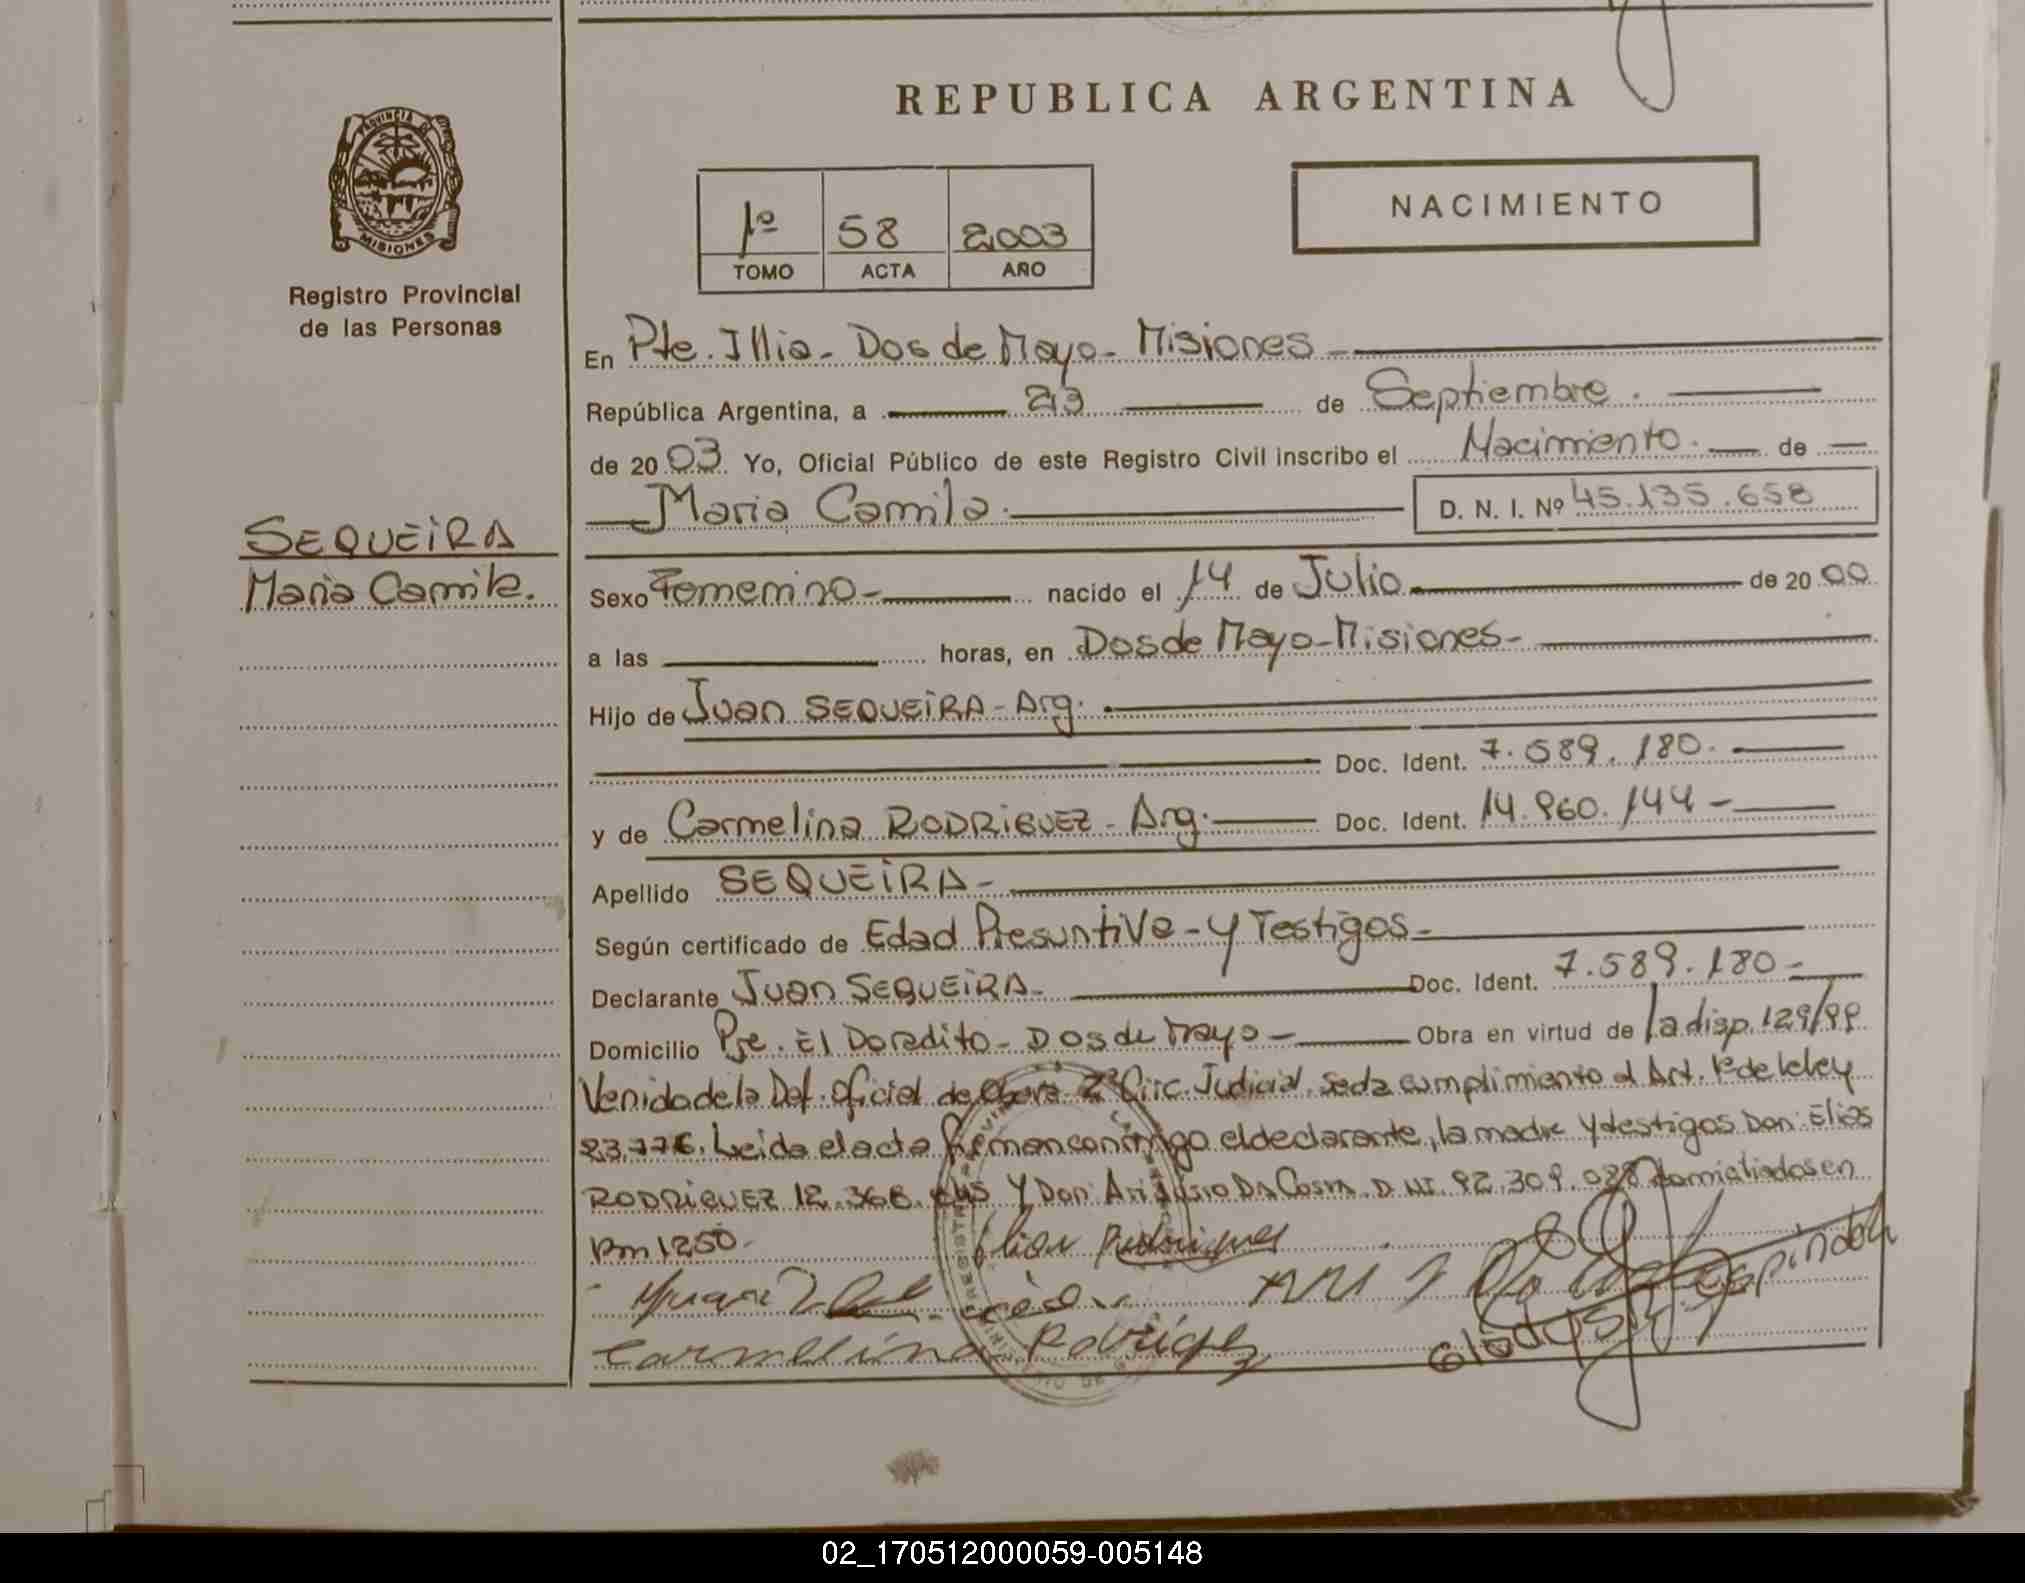 REPUBLICA ARGENTINA
PROVINCIA DE
MISIONES
Registro Provincial
de las Personas
1º 58 2003
TOMO ACTA AÑO
NACIMIENTO
En Pte. Illia - Dos de Mayo - Misiones
República Argentina, a 23 de Septiembre.
de 2003. Yo, Oficial Público de este Registro Civil inscribo el Nacimiento. de
Maria Camila. D. N. I. Nº 45.135.658
SEQUEiRA
Maria Camila.
Sexo Femenino- nacido el 14 de Julio de 2000
a las horas, en Dos de Mayo-Misiones-
Hijo de Juan SEQUEiRA - Arg.
Doc. Ident. 7.589.180.
y de Carmelina RODRiGUEZ - Arg. Doc. Ident. 14.960.144-
Apellido SEQUEiRA-
Según certificado de Edad Presuntiva - y Testigos-
Declarante Juan SEQUEiRA- Doc. Ident. 7.589.180-
Domicilio Pje. El Doradito - Dos de Mayo - Obra en virtud de la disp. 129/99
Venida de la Def. Oficial de Obera 2ª Circ. Judicial. Se da cumplimiento al Art. 1º de la ley
23.776. Leida el acta firman conmigo el declarante, la madre y testigos Don: Elias
RODRiGUEZ 12.368. Y Don DA COSTA D.NI. 92.309.028 domiciliados en
Km 1250.
Elias Rodriguez
Carmelina
Gladys Espindola
02_170512000059-005148